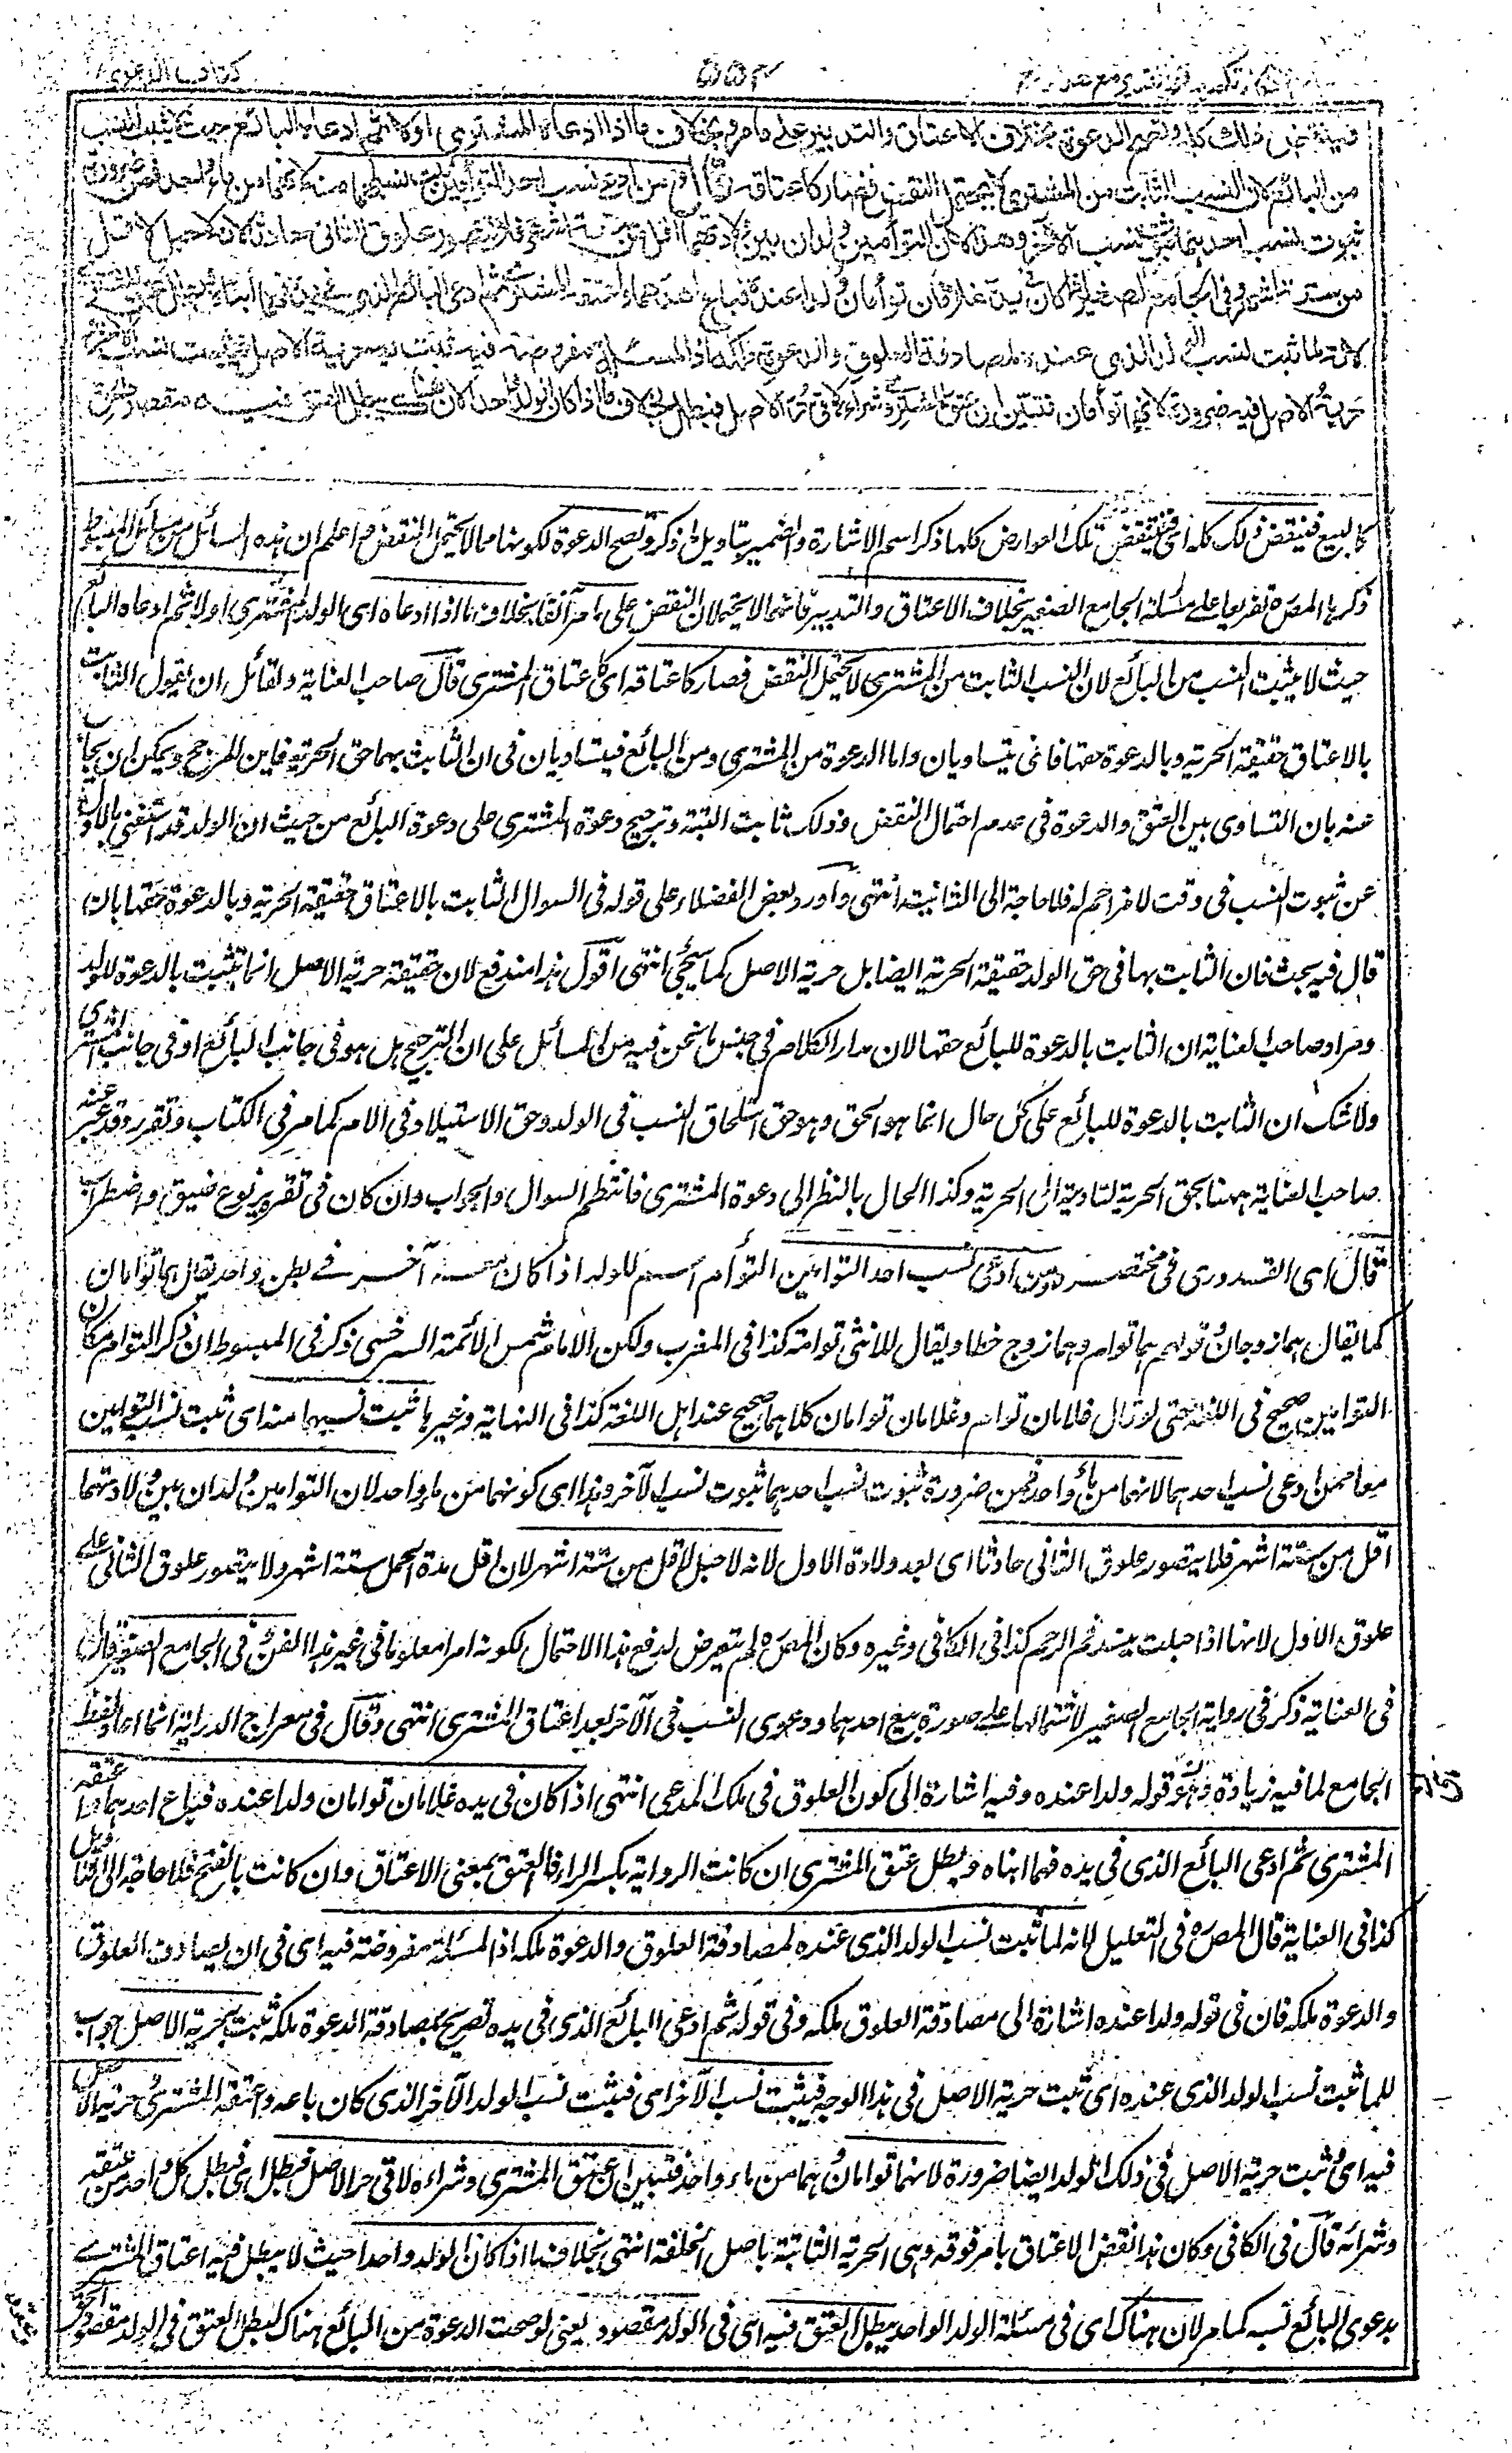 كتاب الدعوى
۵۵۴
فينتقض ذلك كله وتصح الدعوة بخلاف الاعتاق والتدبير على ما مر وبخلاف ما اذا ادعاه المشترى اولا ثم ادعاه البائع حيث لا يثبت النسب
من البائع لان النسب الثابت من المشترى لا يحتمل النقض فصار كاعتاقه قال ومن ادعى نسب احد التوأمين يثبت نسبهما منه لانهما من ماء واحد فمن ضرورة
ثبوت نسب احدهما ثبوت نسب الآخر وهذا لان التوأمين ولدان بين ولادتهما اقل من ستة اشهر فلا يتصور علوق الثانى حادثا لانه لا حبل لاقل
من ستة اشهر وفى الجامع الصغير اذا كان فى يده غلامان توأمان ولدا عنده فباع احدهما واعتقه المشترى ثم ادعى البائع الذى فى يده فهما ابناه وبطل عتق المشترى
لانه لما ثبت نسب الذى عنده لمصادفة العلوق والدعوة ملكه اذ المسئلة مفروضة فيه ثبت به حرية الاصل فيثبت نسب الآخر
حرية الاصل فيه ضرورة لانهما توأمان فتبين ان عتق المشترى وشراءه لاقى حر الاصل فبطل بخلاف ما اذا كان الولد واحدا لان هناك يبطل العتق فيه مقصودا
كالبيع فينتقض ذلك كله اى فينتقض تلك العوارض كلها ذكر اسم الاشارة والضمير بتاويل ما ذكر وتصح الدعوة لكونها مما لا يحتمل النقض ثم اعلم ان هذه المسائل من مسائل المبسوط
ذكرها المصره تفريعا على مسئلة الجامع الصغير بخلاف الاعتاق والتدبير فانهما لا يحتملان النقض على ما مر آنفا بخلاف ما اذا ادعاه اى الولد المشترى اولا ثم ادعاه البائع
حيث لا يثبت النسب من البائع لان النسب الثابت من المشترى لا يحتمل النقض فصار كاعتاقه اى كاعتاق المشترى قال صاحب العناية ولقائل ان يقول الثابت
بالاعتاق حقيقة الحرية وبالدعوة حقها فانى يتساويان واما الدعوة من المشترى ومن البائع فيتساويان فى ان الثابت بهما حق الحرية فاين المرجح ويمكن ان يجاب
عنه بان التساوى بين العتق والدعوة فى عدم احتمال النقض وذلك ثابت البتة وترجيح دعوة المشترى على دعوة البائع من حيث ان الولد قد استغنى بالاول
عن ثبوت النسب فى وقت لا مزاحم له فلا حاجة الى الثانية انتهى وآورد بعض الفضلاء على قوله فى السوال الثابت بالاعتاق حقيقة الحرية وبالدعوة حقها بان
قال فيه بحث فان الثابت بها فى حق الولد حقيقة الحرية ايضا بل حرية الاصل كما سيجئ انتهى اقول هذا مندفع لان حقيقة حرية الاصل انما تثبت بالدعوة للولد
ومراد صاحب العناية ان الثابت بالدعوة للبائع حقها لان مدار الكلام فى جنس ما نحن فيه من المسائل على ان الترجيح هل هو فى جانب البائع او فى جانب المشترى
ولا شك ان الثابت بالدعوة للبائع على كل حال انما هو الحق وهو حق استلحاق النسب فى الولد وحق الاستيلاد فى الام كما مر فى الكتاب وتقرر وقد عبر عنه
صاحب العناية ههنا بحق الحرية لتاديته الى الحرية وكذا الحال بالنظر الى دعوة المشترى فانتظم السوال والجواب وان كان فى تقريره نوع ضيق واضطراب
قال اى القدورى فى مختصره ومن ادعى نسب احد التوامين التوأم اسم للولد اذا كان معه آخر فى بطن واحد يقال هما توأمان
كما يقال هما زوجان وقولهم هما توام وهما زوج خطا ويقال للانثى توامة كذا فى المغرب ولكن الامام شمس الائمة السرخسى ذكر فى المبسوط ان ذكر التوام مكان
التوامين صحيح فى اللغة حتى لو قال غلامان توام وغلامان توامان كلاهما صحيح عند اهل اللغة كذا فى النهاية وغيرها ثبت نسبهما منه اى ثبت نسب التوامين
معا ممن ادعى نسب احدهما لانهما من ماء واحد فمن ضرورة ثبوت نسب احدهما ثبوت نسب الآخر وهذا اى كونهما من ماء واحد لان التوامين ولدان بين ولادتهما
اقل من ستة اشهر فلا يتصور علوق الثانى حادثا اى بعد ولادة الاول لانه لا حبل لاقل من ستة اشهر لان اقل مدة الحمل ستة اشهر ولا يتصور علوق الثانى على
علوق الاول لانها اذا حبلت ينسد فم الرحم كذا فى الكافى وغيره وكان المصره لم يتعرض لدفع هذا الاحتمال لكونه امرا معلوما فى غير هذا الفن وفى الجامع الصغير قال
فى العناية ذكر فى رواية الجامع الصغير لاشتمالها على صورة بيع احدهما ودعوى النسب فى الآخر بعد اعتاق المشترى انتهى وقال فى معراج الدراية انما اعاد لفظ
الجامع لما فيه زيادة وهو قوله ولدا عنده وفيه اشارة الى كون العلوق فى ملك المدعى انتهى اذا كان فى يده غلامان توامان ولدا عنده فباع احدهما واعتقه
المشترى ثم ادعى البائع الذى فى يده فهما ابناه وبطل عتق المشترى ان كانت الرواية بكسر الراء فالعتق بمعنى الاعتاق وان كانت بالفتح فلا حاجة الى التاويل
كذا فى العناية قال المصره فى التعليل لانه لما ثبت نسب الولد الذى عنده لمصادفة العلوق والدعوة ملكه اذ المسئلة مفروضة فيه اى فى ان يصادف العلوق
والدعوة ملكه فان فى قوله ولدا عنده اشارة الى مصادفة العلوق ملكه وفى قوله ثم ادعى البائع الذى فى يده تصريح بمصادفة الدعوة ملكه ثبت به حرية الاصل جواب
للما ثبت نسب الولد الذى عنده اى ثبت حرية الاصل فى هذا الوجه فيثبت نسب الآخر اى فيثبت نسب الولد الآخر الذى كان باعه واعتقه المشترى وحرية الاصل
فيه اى وثبت حرية الاصل فى ذلك الولد ايضا ضرورة لانهما توامان وهما من ماء واحد فتبين ان عتق المشترى وشراءه لاقى حر الاصل فبطل اى فبطل كل واحد من عتقه
وشرائه قال فى الكافى وكان هذا نقض الاعتاق بامر فوقه وهى الحرية الثابتة باصل الخلقة انتهى بخلاف ما اذا كان الولد واحدا حيث لا يبطل فيه اعتاق المشترى
بدعوى البائع نسبه كما مر لان هناك اى فى مسئلة الولد الواحد يبطل العتق فيه اى فى الولد مقصودا يعنى لو صحت الدعوة من البائع هناك لبطل العتق فى الولد مقصودا